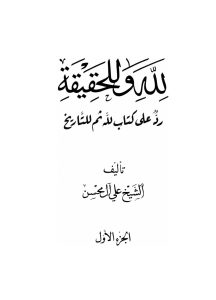 لِلَّهِ وَلِلْحَقِيقَةِ
رد على كتاب لله ثم للتاريخ
تأليف
الشيخ علي آل محسن
الجزء الأول